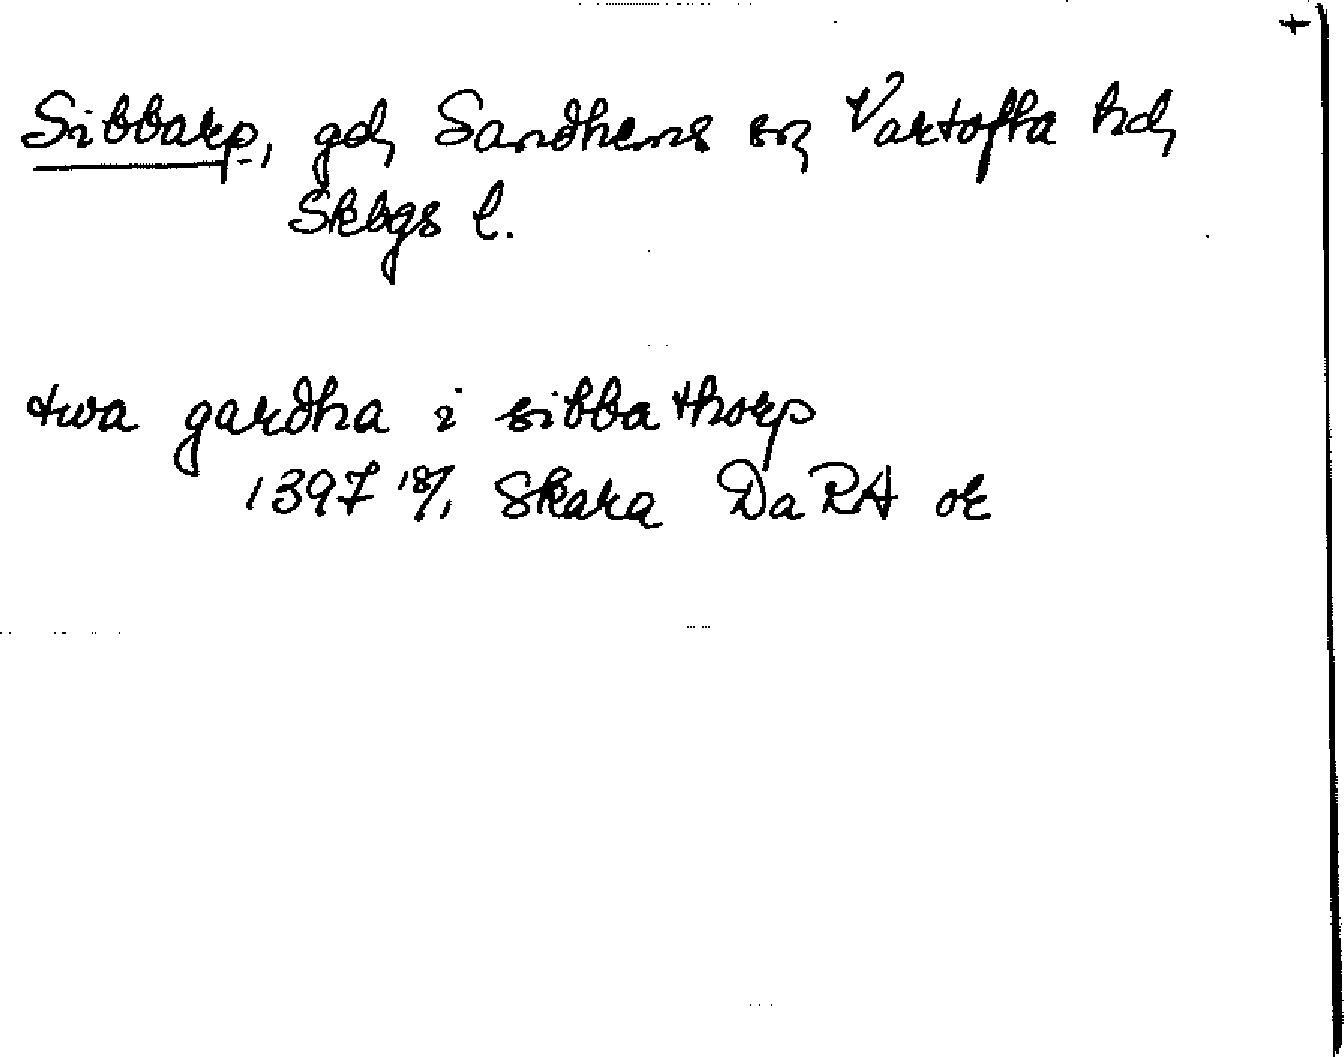 +
Sibbarp, gd, Sandhems sn, Vartofta hd,
Skbgs l.
twa gardha i sibbathorp
1397 18/1 Skara DaRA or